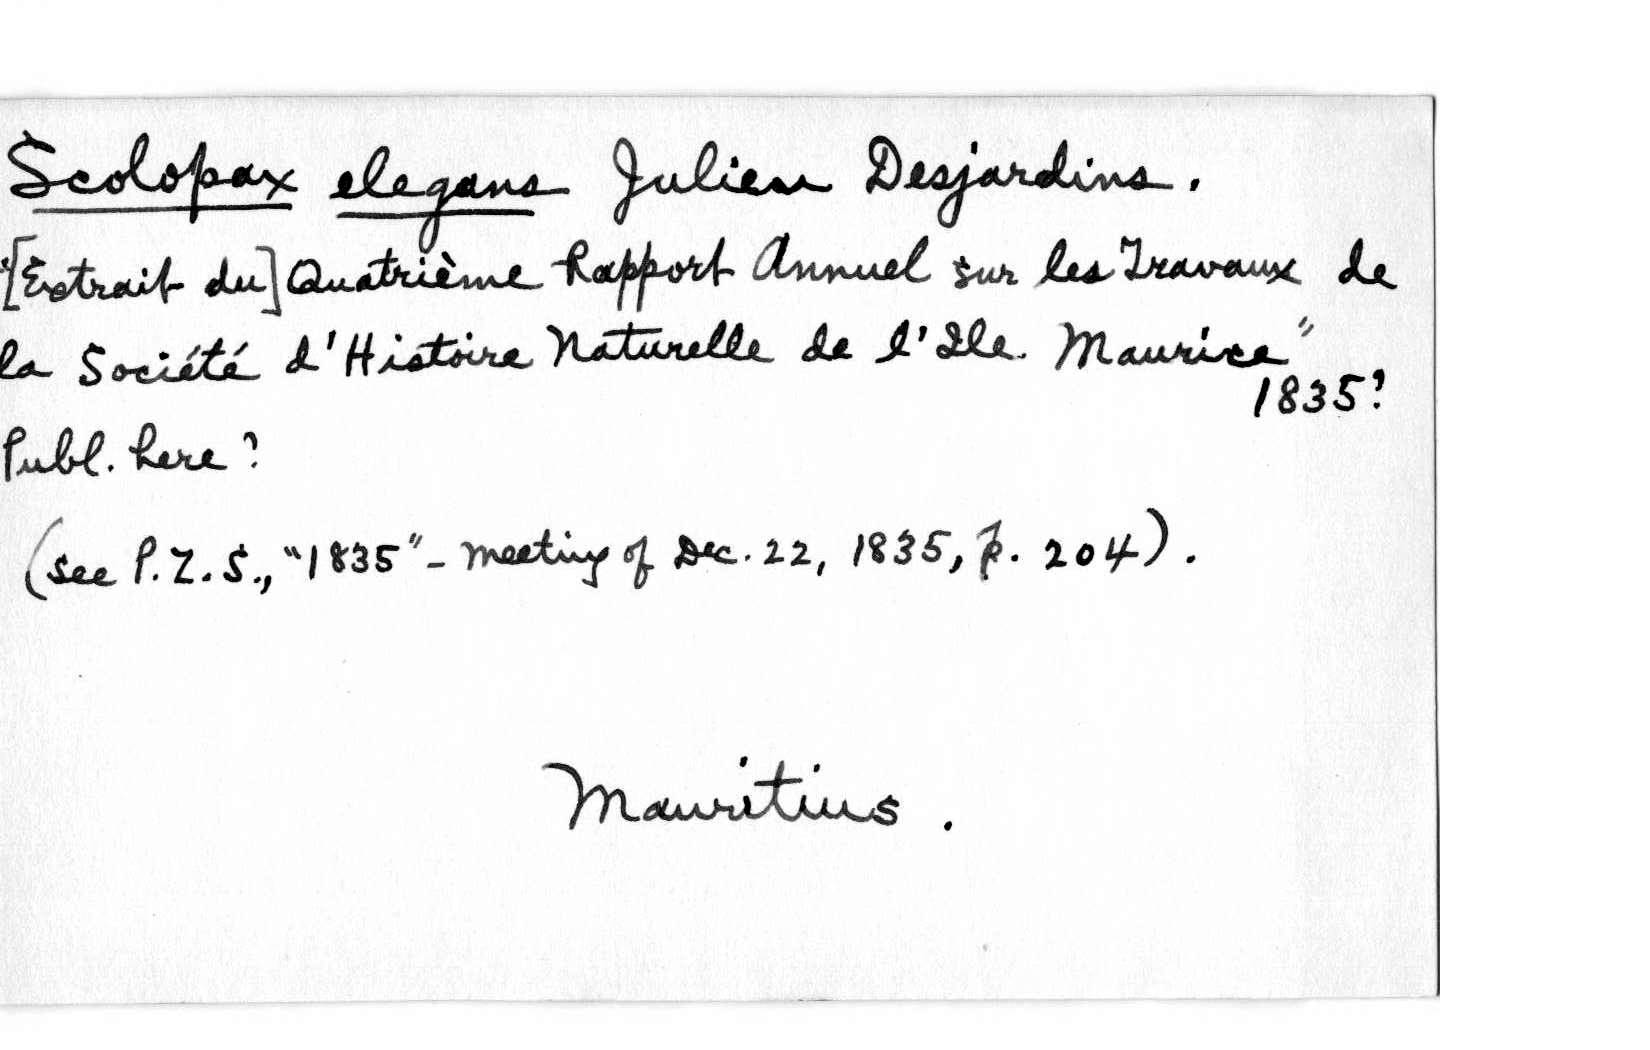 Scolopax elegans Julien Desjardins.
"[Extrait du] Quatrième Rapport Annuel sur les Travaux de
la Société d'Histoire Naturelle de l'Ile Maurice"
1835?
Publ. here?
(see P.Z.S., "1835" - meeting of Dec. 22, 1835, p. 204).
Mauritius.